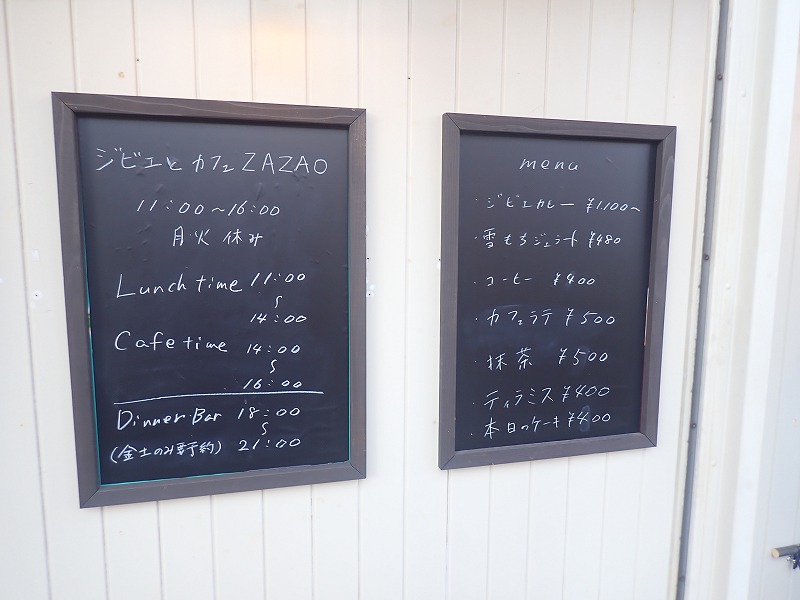 ジビエとカフェZAZAO
11:00〜16:00
月火休み
Lunch time 11:00
〜
14:00
Cafe time 14:00
〜
16:00
Dinner Bar 18:00
〜
(金土のみ要予約) 21:00
menu
・ジビエカレー ¥1.100〜
・雪もちジェラート ¥480
・コーヒー ¥400
・カフェラテ ¥500
・抹茶 ¥500
・ティラミス ¥400
・本日のケーキ ¥400